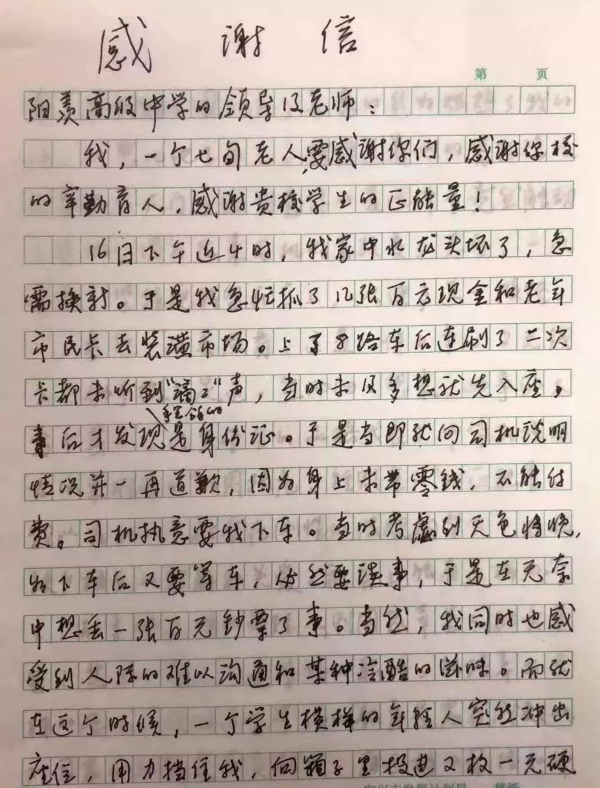 感 谢 信
第 页
阳羡高级中学的领导及老师：
我，一个七旬老人，要感谢你们，感谢你校
的辛勤育人，感谢贵校学生的正能量！
16日下午近4时，我家中水龙头坏了，急
需换新。于是我急忙抓了12张百元现金和老年
市民卡去装潢市场。上了8路车后连刷了二次
卡都未听到“滴滴”声，当时未及多想就先入座，
事后才发现拿出的是身份证。于是当即就向司机说明
情况并一再道歉，因为身上未带零钱，不能付
费。司机执意要我下车。当时考虑到天色将晚，
如下车后又要等车，必然要误事，于是在无奈
中想丢一张百元钞票了事。当然，我同时也感
受到人际的难以沟通和某种冷酷的滋味。而就
在这个时候，一个学生模样的年轻人突然冲出
座位，用力挡住我，向箱子里投进2枚一元硬